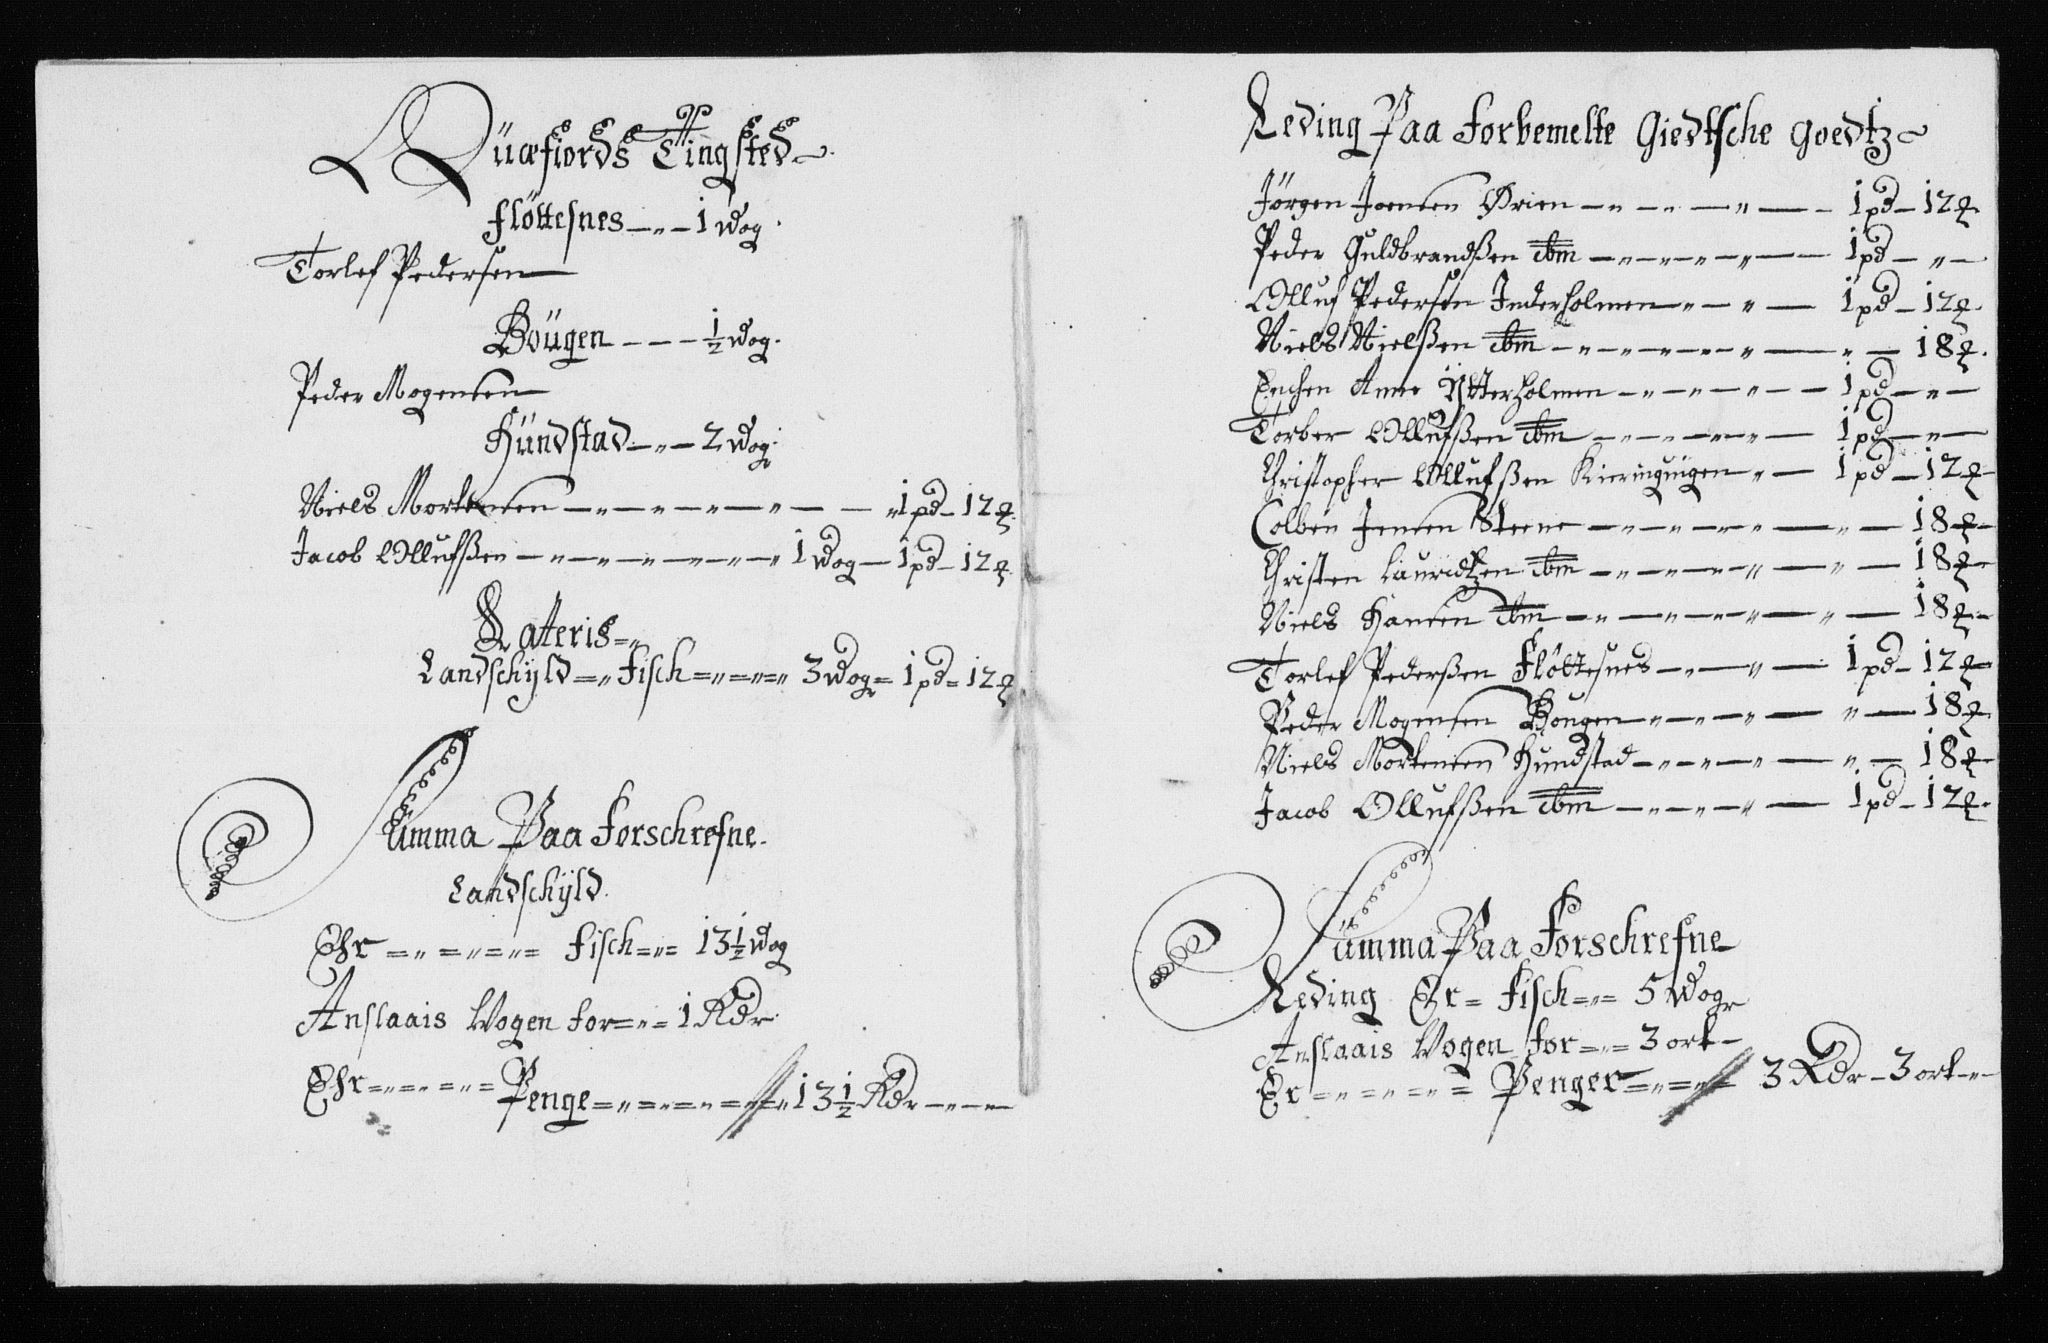 Qüæfiords Tingsted
fløttesnes — " — 1 wog.
Torlef Pedersen
Boügen - - - ½ wog.
Peder Mogensen
Hündstad — " — 2 wog.
Niels Mortensen — " — " — " — " — " 1 pd — 12 ℔.
Jacob Ollufßen — " — " — " — " 1 wog — 1 pd — 12 ℔.
Lateris = "
Landschyld = " fisch = " = " = 3 wogr = 1 pd = 12 ℔
Sümma Paa forschrefne.
Landschyld.
Ehr = " = " = " = fisch = " = 13½ wog
Anslaais Wogen for = " = 1 Rdr.
Ehr = " = " = " = Penge = " = " = " = 13½ Rdr — " —
Leding Paa forbemelte Giedtsche Goedtz
Jörgen Joensen Ørien — " — " — " — 1 pd — 12 ℔.
Peder Guldbrandßen ibm — " — " — " — 1 pd — " —
Olluf Pedersen Inderholmen — " — " — 1 pd — 12 ℔.
Niels Nielßen ibm — " — " — " — " — 18 ℔.
Enchen Anne Ÿtterholmen — " — " — " — 1 pd — " —
Torber Ollufßen ibm — " — " — " — 1 pd — " —
Christopher Ollufßen Kieringüigen " — 1 pd — 12 ℔
Colben Jensen Steene — " — " — " — " — 18 ℔
Christen Lauridtzen ibm — " — " — " — " — 18 ℔
Niels Hansen ibm — " — " — " — " — 18 ℔
Torlef Pederßen Fløttesnes — " — " — 1 pd — 12 ℔
Peder Mogensen Bougen — " — " — " — " — 18 ℔
Niels Mortensen Hundstad — " — " — " — " — 18 ℔
Jacob Ollufßen ibm — " — " — " — 1 pd — 12 ℔.
Sümma Paa Forschrefne
Leding Er = fisch = " = 5 wogr
Anslaais Wogen for = " = 3 ort —
Er = " = " = " = Penger = " = " = 3 Rdr — 3 ort — "